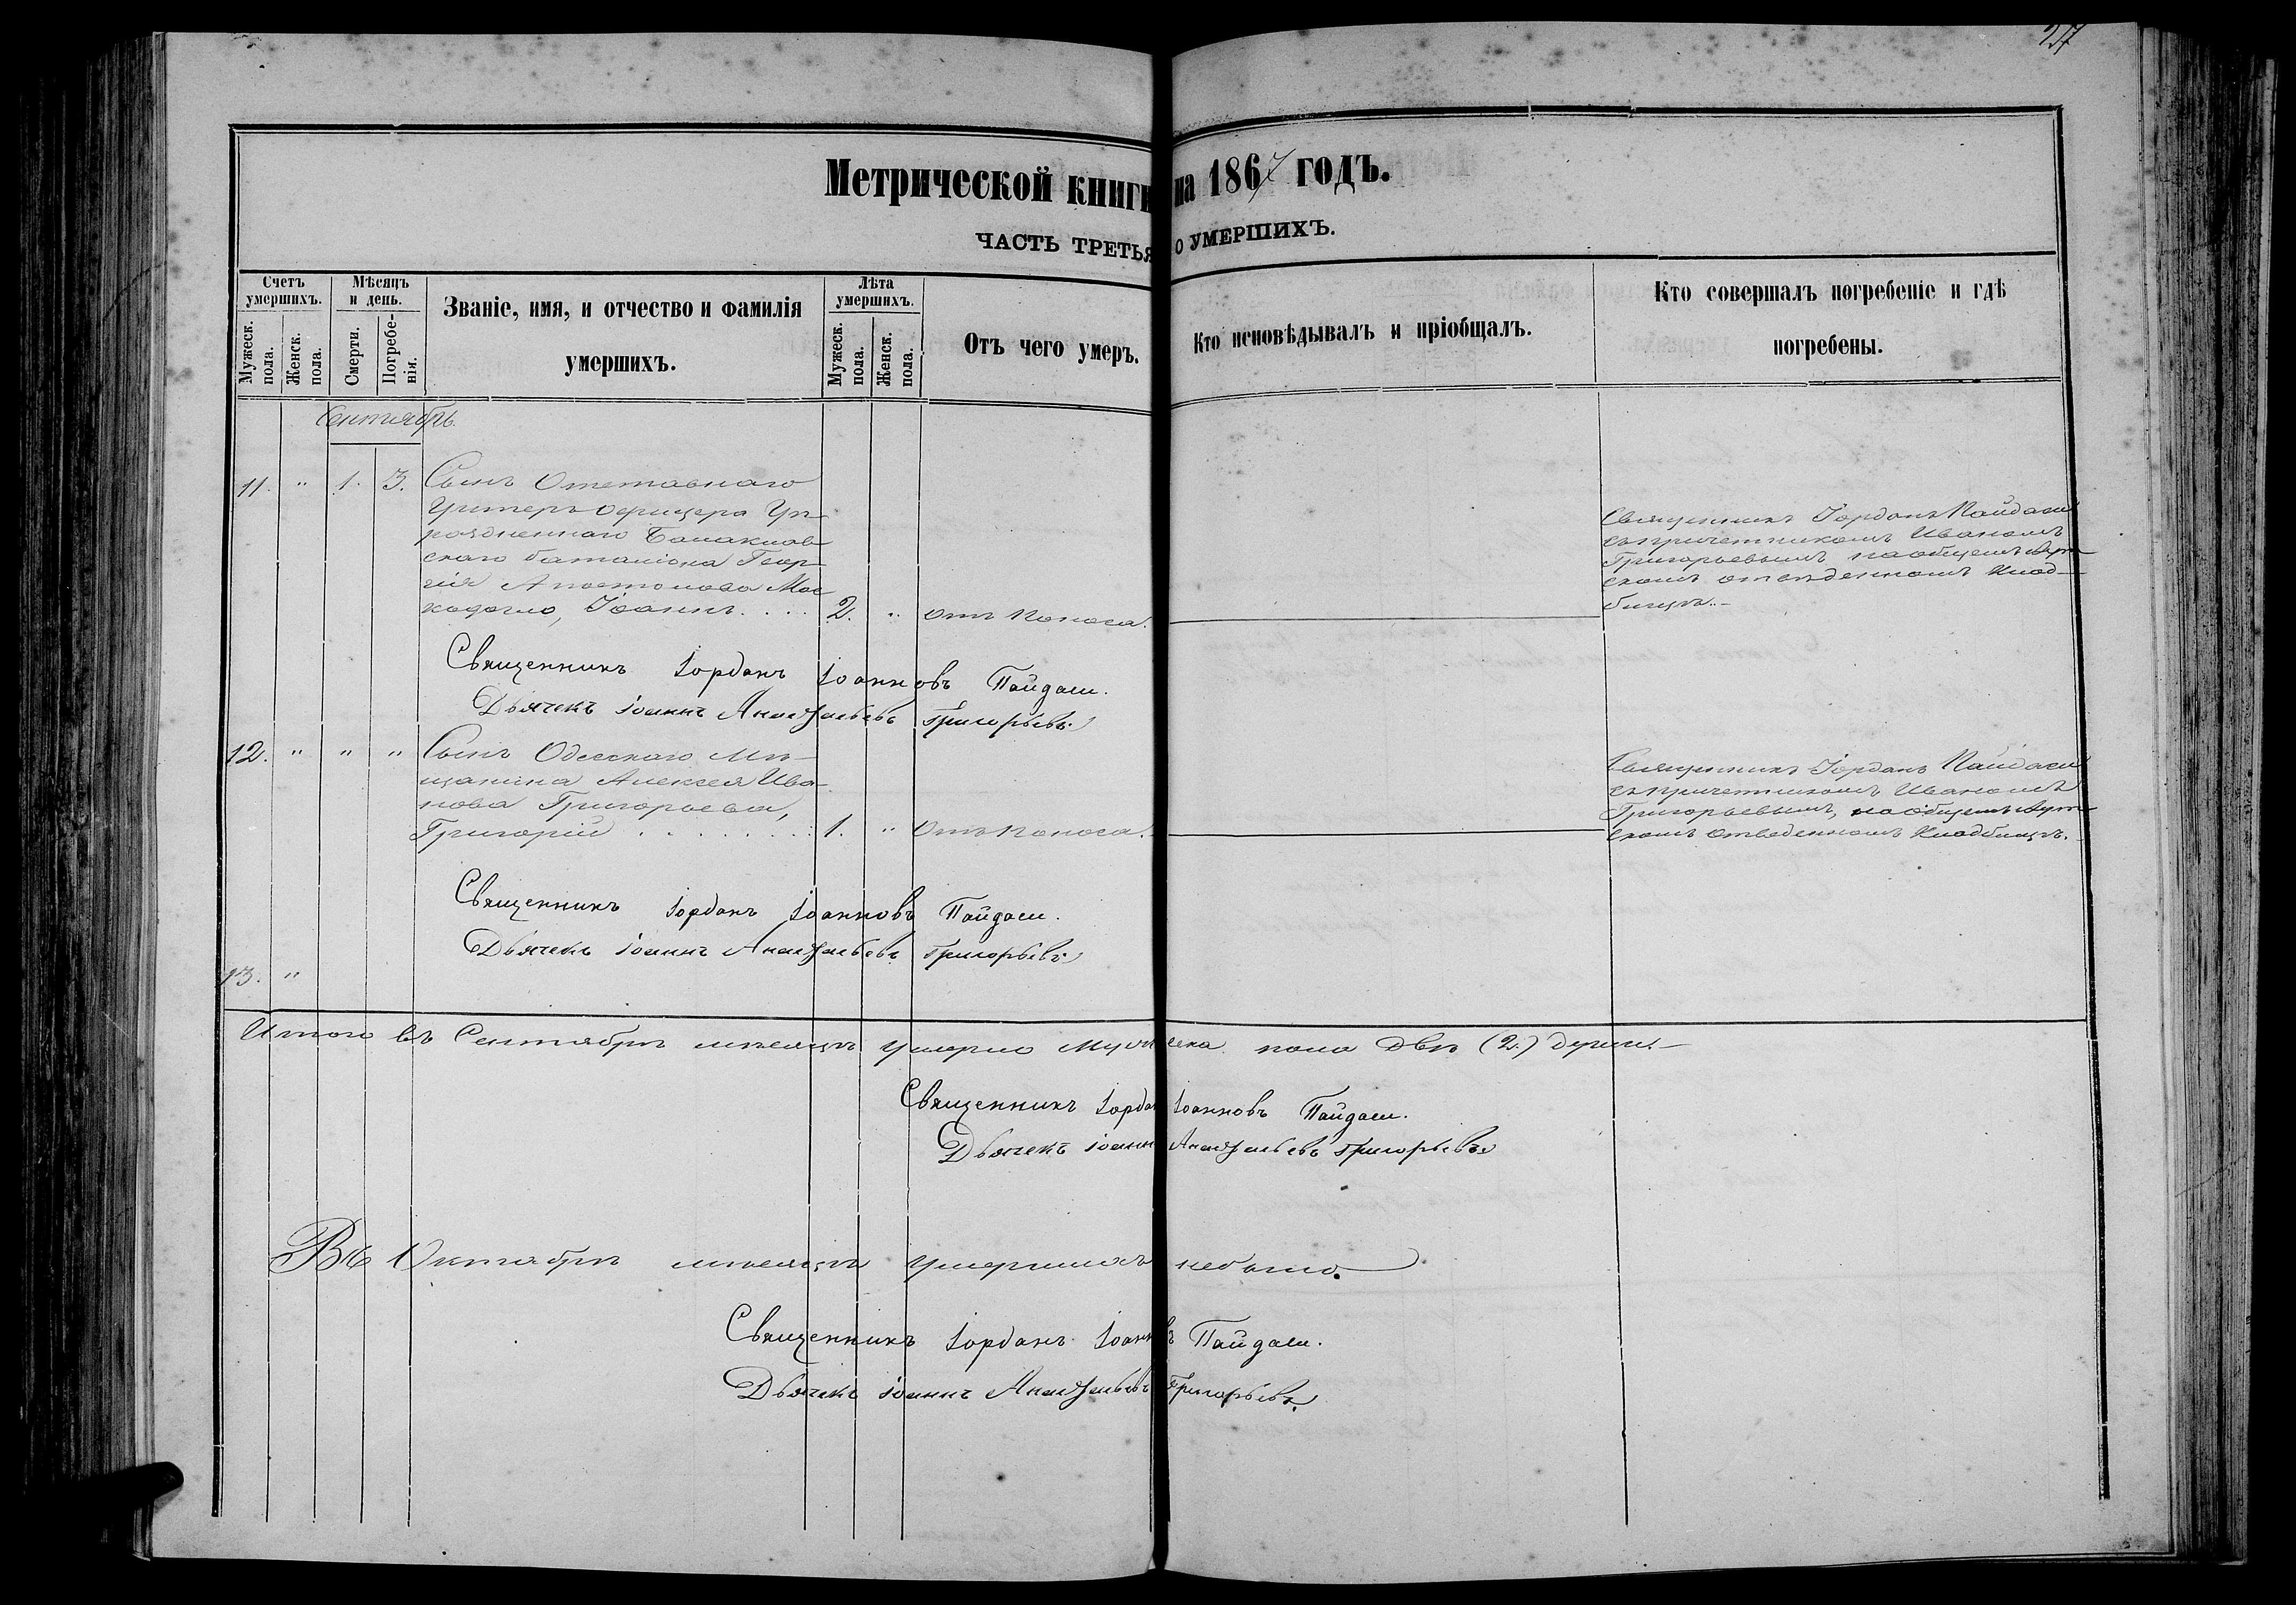 Метрической книги на 1867 годъ.
ЧАСТЬ ТРЕТЬЯ О УМЕРШИХЪ.
Счетъ умершихъ.
Мужеск. пола.
Женск. пола.
Мѣсяцъ и день.
Смерти.
Погребенія.
Званіе, имя, и отчество и фамилія
умершихъ.
Лѣта умершихъ.
Мужеск. пола.
Женск. пола.
Отъ чего умеръ.
Кто исповѣдывалъ и пріобщалъ.
Кто совершалъ погребеніе и гдѣ
погребены.
Сентябрь.
11. " 1. 3. Сынъ Отставнаго
Унтеръ Офицера Уп-
раздненнаго Балаклав-
скаго баталіона Геор-
гія Апостолова
Іоаннъ. . . . 2. " отъ поноса.
Священникъ Іорданъ Пайдаси
съ причетникомъ Иваномъ
Григорьевымъ на общемъ
отведенномъ клад-
бищѣ.
Священникъ Іорданъ Іоанновъ Пайдаси.
Дьячекъ Іоаннъ Григорьевъ
12. " " " Сынъ Одесскаго Мѣ-
щанина Алексея Ива-
нова Григорьева,
Григорій . . . . . . . . 1. " Отъ поноса.
Священникъ Іорданъ Пайдаси
съ причетникомъ Иваномъ
Григорьевымъ, на общемъ
отведенномъ кладбищѣ.
Священникъ Іорданъ Іоанновъ Пайдаси.
Дьячекъ Іоаннъ Григорьевъ
13. "
Итого въ Сентябрѣ мѣсяцѣ умерло мужеска пола двѣ (2.) души.
Священникъ Іорданъ Іоанновъ Пайдаси.
Дьячекъ Іоаннъ Григорьевъ
Въ Октябрѣ мѣсяцѣ умершихъ небыло.
Священникъ Іорданъ Іоанновъ Пайдаси.
Дьячекъ Іоаннъ Григорьевъ.